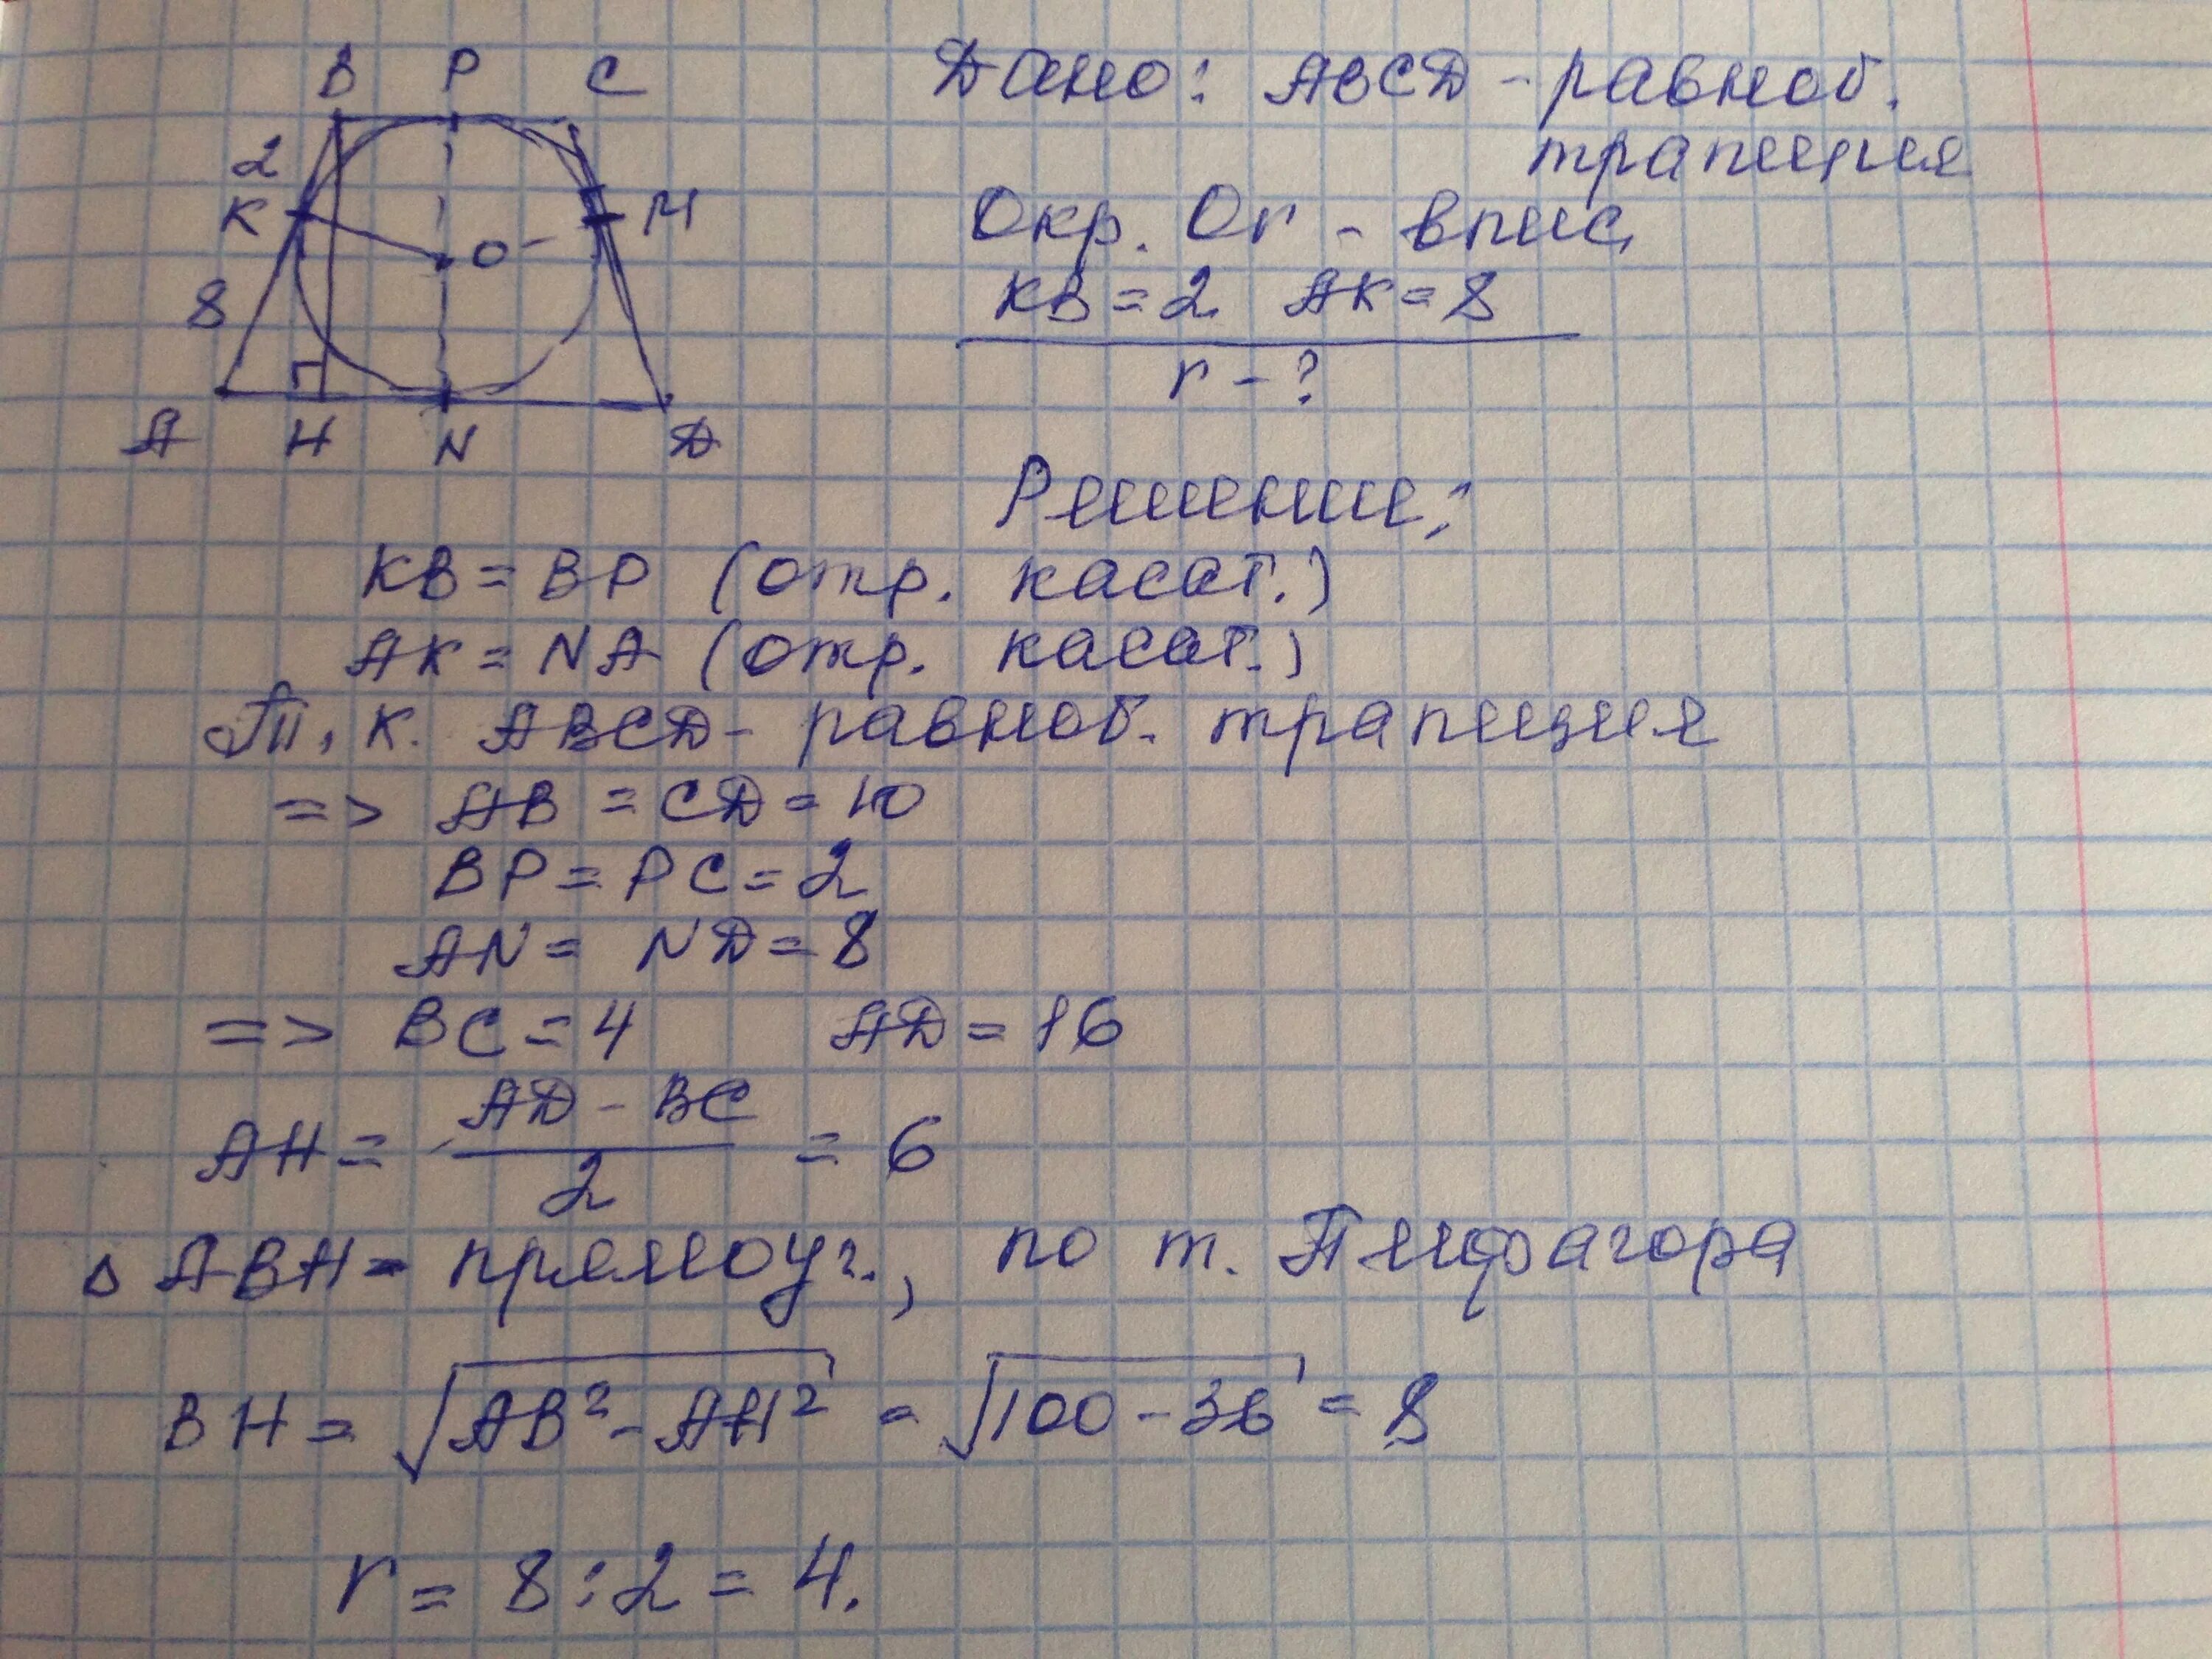 B P C
2
K M
O
8
A H N D
Дано: ABCD - равноб.
трапеция
Окр. Or - впис.
KB = 2 AK = 8
r - ?
Решение:
KB = BP (отр. касат.)
AK = NA (отр. касат.)
Т. к. ABCD - равноб. трапеция
=> AB = CD = 10
BP = PC = 2
AN = ND = 8
=> BC = 4 AD = 16
AH = \frac{AD - BC}{2} = 6
△ ABH - прямоуг., по т. Пифагора
BH = √(AB² - AH²) = √(100 - 36) = 8
r = 8 : 2 = 4.